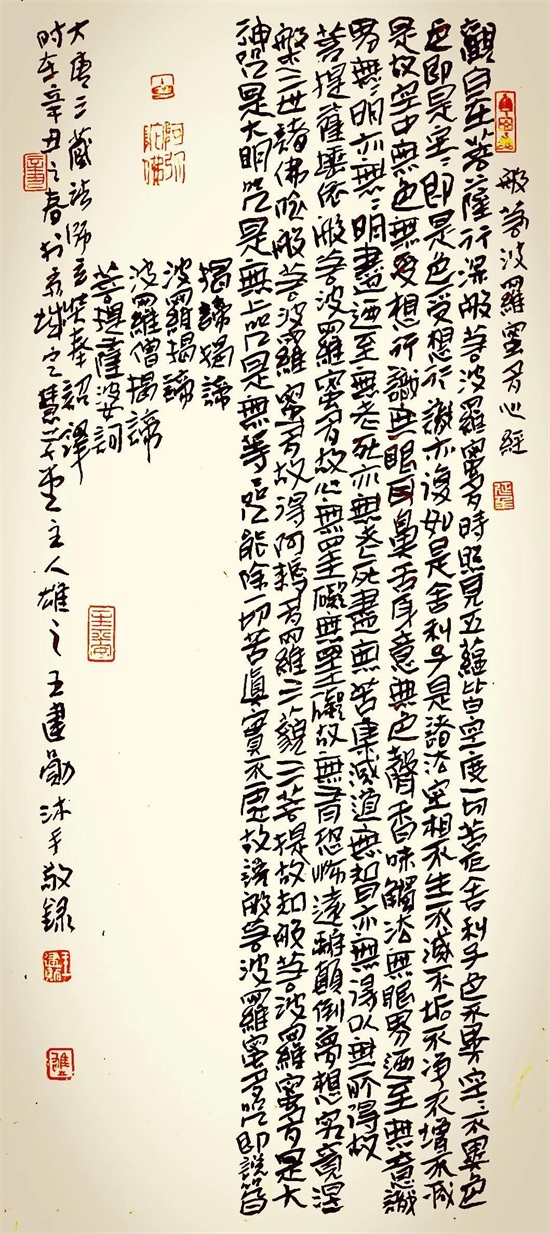 般若波羅蜜多心經
觀自在菩薩行深般若波羅蜜多時照見五蘊皆空度一切苦厄舍利子色不異空〻不異色
色即是空〻即是色受想行識亦復如是舍利子是諸法空相不生不滅不垢不淨不增不減
是故空中無色無受想行識無眼耳鼻舌身意無色聲香味觸法無眼界迺至無意識
界無〻明亦無〻明盡迺至無老死亦無老死盡無苦集滅道無智亦無得以無所得故
菩提薩埵依般若波羅蜜多故心無罣礙無罣礙故無有恐怖遠離顛倒夢想究竟涅
槃三世諸佛依般若波羅蜜多故得阿耨多羅三藐三菩提故知般若波羅蜜多是大
神咒是大明咒是無上咒是無等〻咒能除一切苦真實不虛故說般若波羅蜜多咒即說咒曰
揭諦揭諦
波羅揭諦
波羅僧揭諦
菩提薩婆訶
阿弥陀佛
大唐三藏法师玄奘奉詔譯
时在辛丑之春於京城之慧堂主人雄之王建勛沐手敬錄